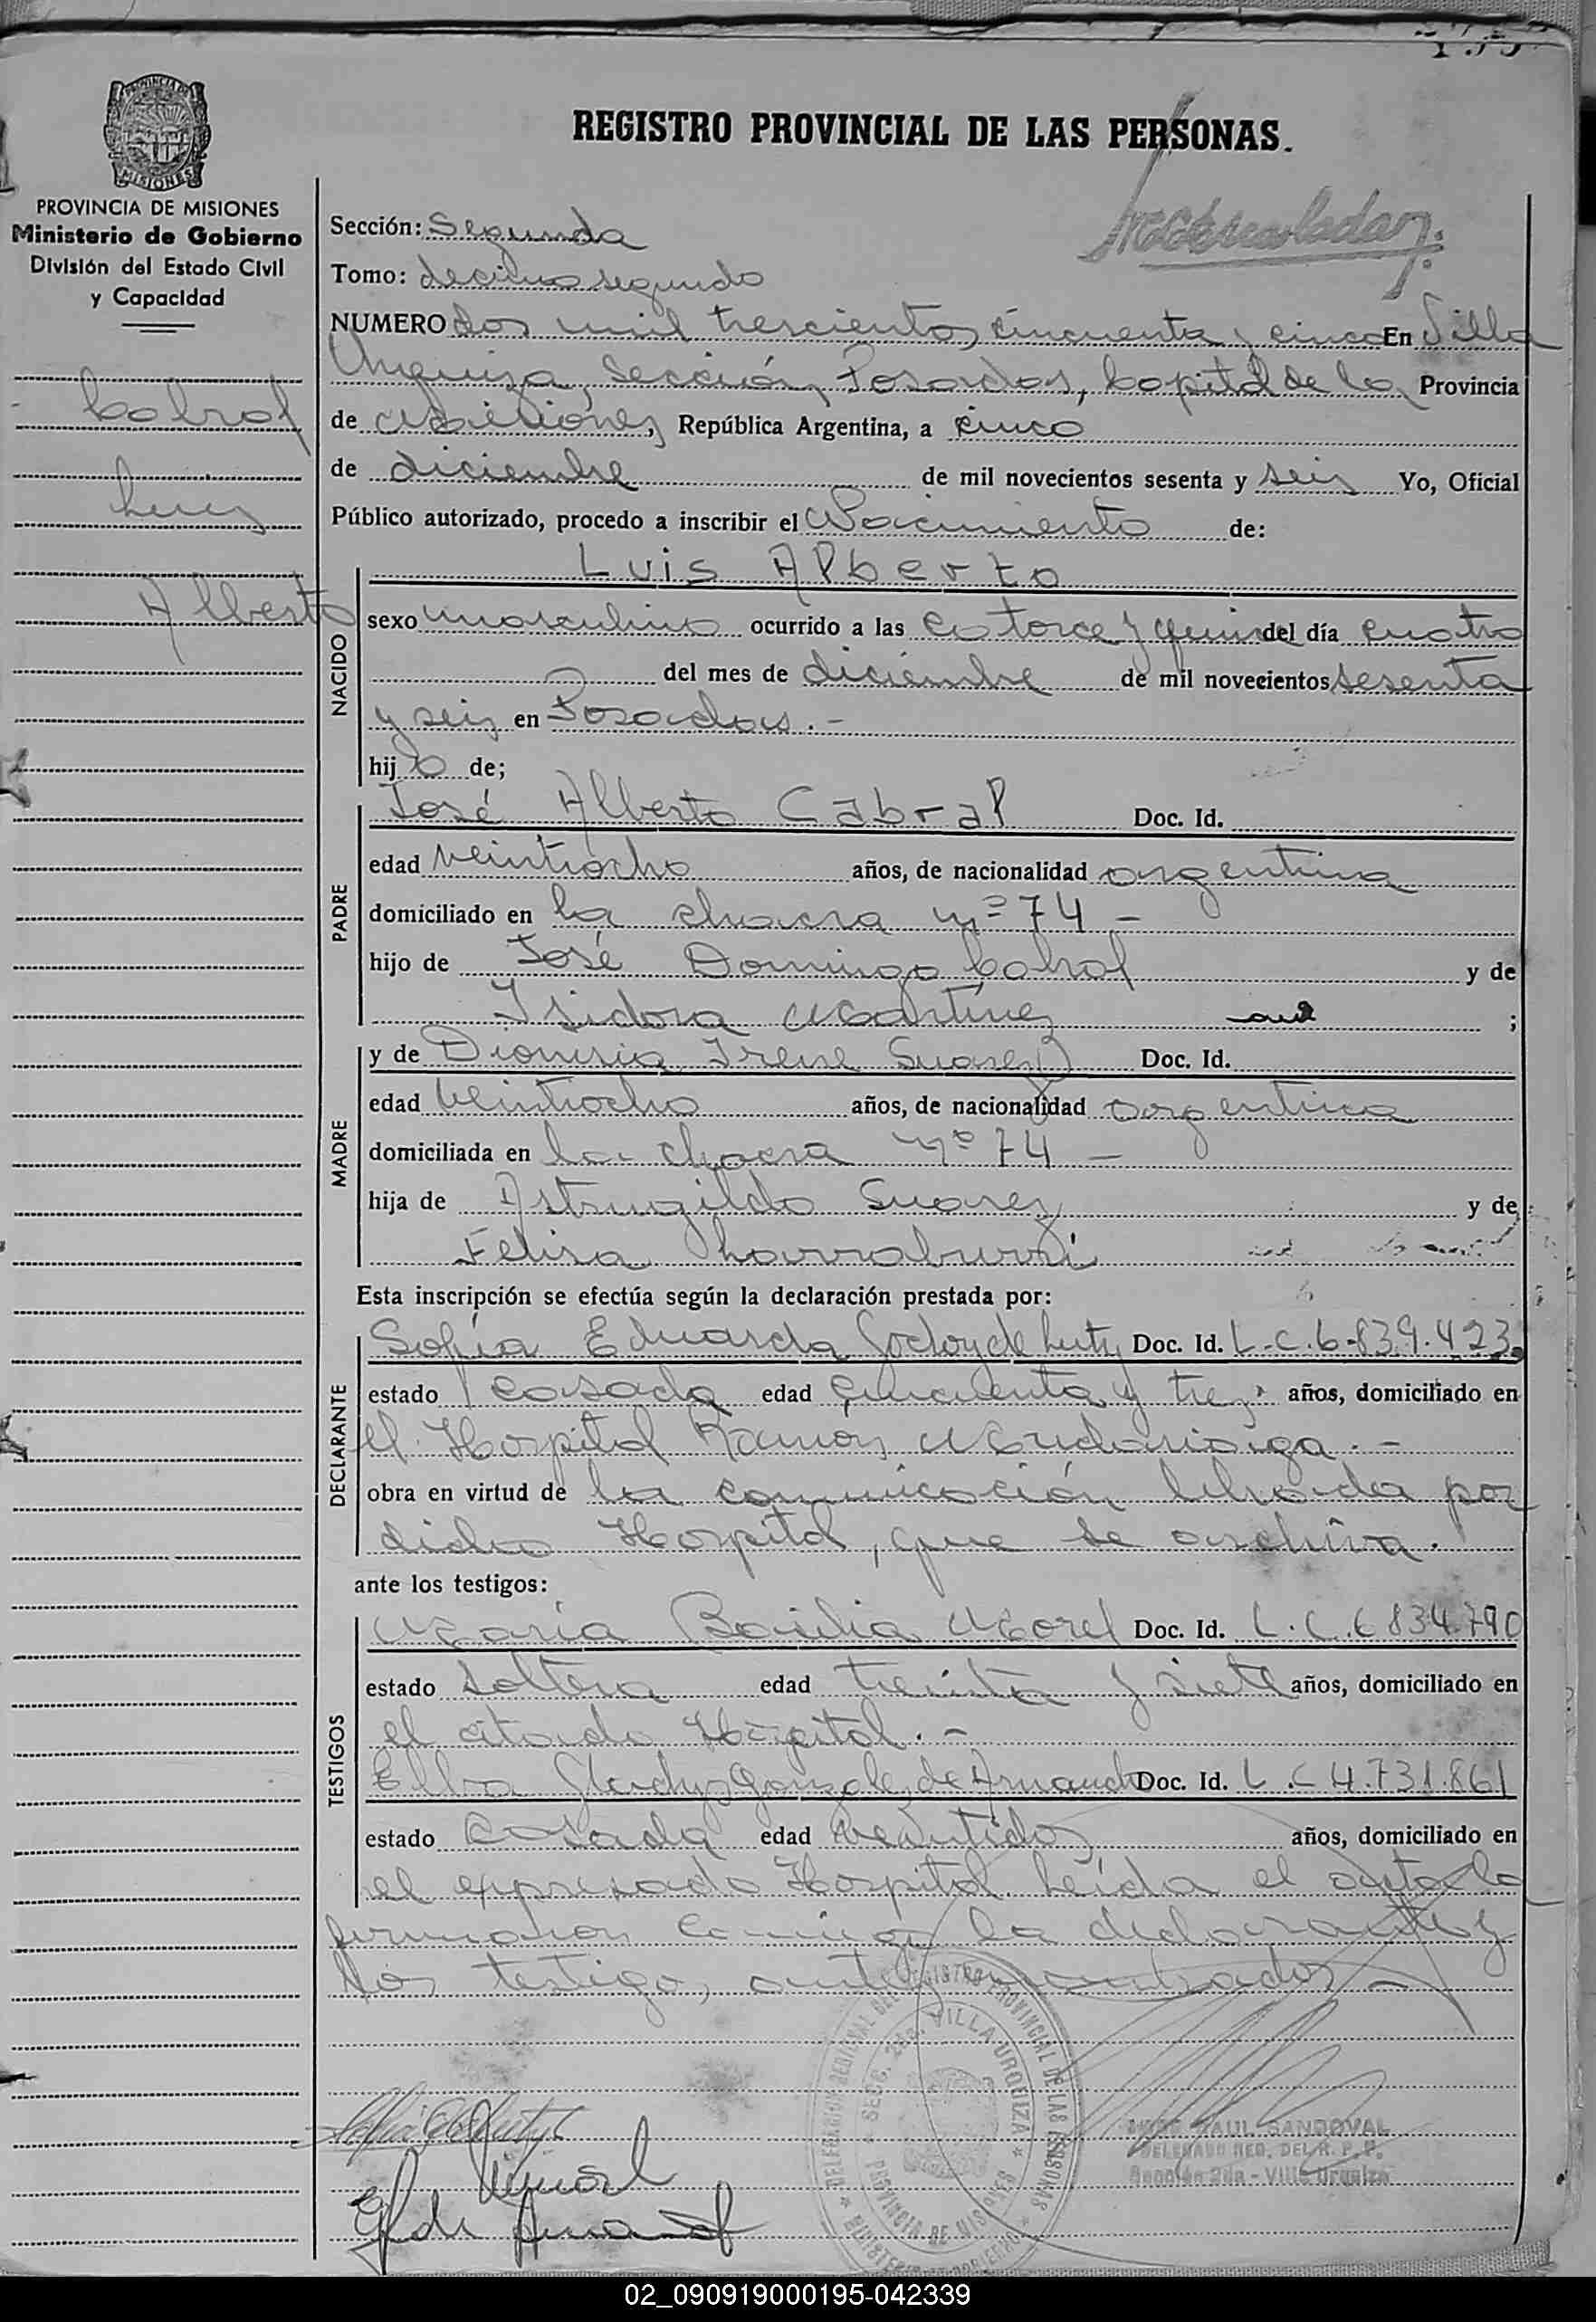 REGISTRO PROVINCIAL DE LAS PERSONAS.
MISIONES
PROVINCIA DE MISIONES
Ministerio de Gobierno
División del Estado Civil
y Capacidad
Cabral
Luis
Alberto
Sección: Segunda
Tomo: decimo segundo
NUMERO dos mil trescientos cincuenta y cinco En Villa
Urquiza, Sección, Posadas, Capital de la Provincia
de Misiones, República Argentina, a cinco
de diciembre de mil novecientos sesenta y seis Yo, Oficial
Público autorizado, procedo a inscribir el Nacimiento de:
NACIDO
Luis Alberto
sexo masculino ocurrido a las catorce y quince del día cuatro
del mes de diciembre de mil novecientos sesenta
y seis en Posadas.-
hijo de;
PADRE
José Alberto Cabral Doc. Id.
edad veintiocho años, de nacionalidad argentina
domiciliado en la chacra nº 74 -
hijo de José Domingo Cabral y de
Isidora Martínez ;
MADRE
y de Dionisia Irene Suarez Doc. Id.
edad veintiocho años, de nacionalidad argentina
domiciliada en la chacra nº 74 -
hija de Astrugildo Suarez y de
Felisa
Esta inscripción se efectúa según la declaración prestada por:
DECLARANTE
Sofía Eduarda Godoy de Doc. Id. L.C. 6.839.423
estado casada edad cincuenta y tres años, domiciliado en
el Hospital Ramón Madariaga.-
obra en virtud de la comunicación librada por
dicho Hospital, que se archiva.
ante los testigos:
TESTIGOS
María Basilia Morel Doc. Id. L.C. 6834.790
estado soltera edad treinta y siete años, domiciliado en
el citado Hospital.-
Elba Gladys Gonzalez de Arnaudo Doc. Id. L.C 4.731.861
estado casada edad veintidos años, domiciliado en
el expresado Hospital. Leída el acta la
firmaron conmigo la declarante y
los testigos antes nombrados -
DELEGACION REGIONAL DEL REGISTRO PROVINCIAL DE LAS PERSONAS
SECC. 2da. VILLA URQUIZA
PROVINCIA DE MISIONES
MINISTERIO DE GOBIERNO
RAUL SANDOVAL
DELEGADO REG. DEL R. P. P.
Sección 2da - Villa Urquiza
02_090919000195-042339